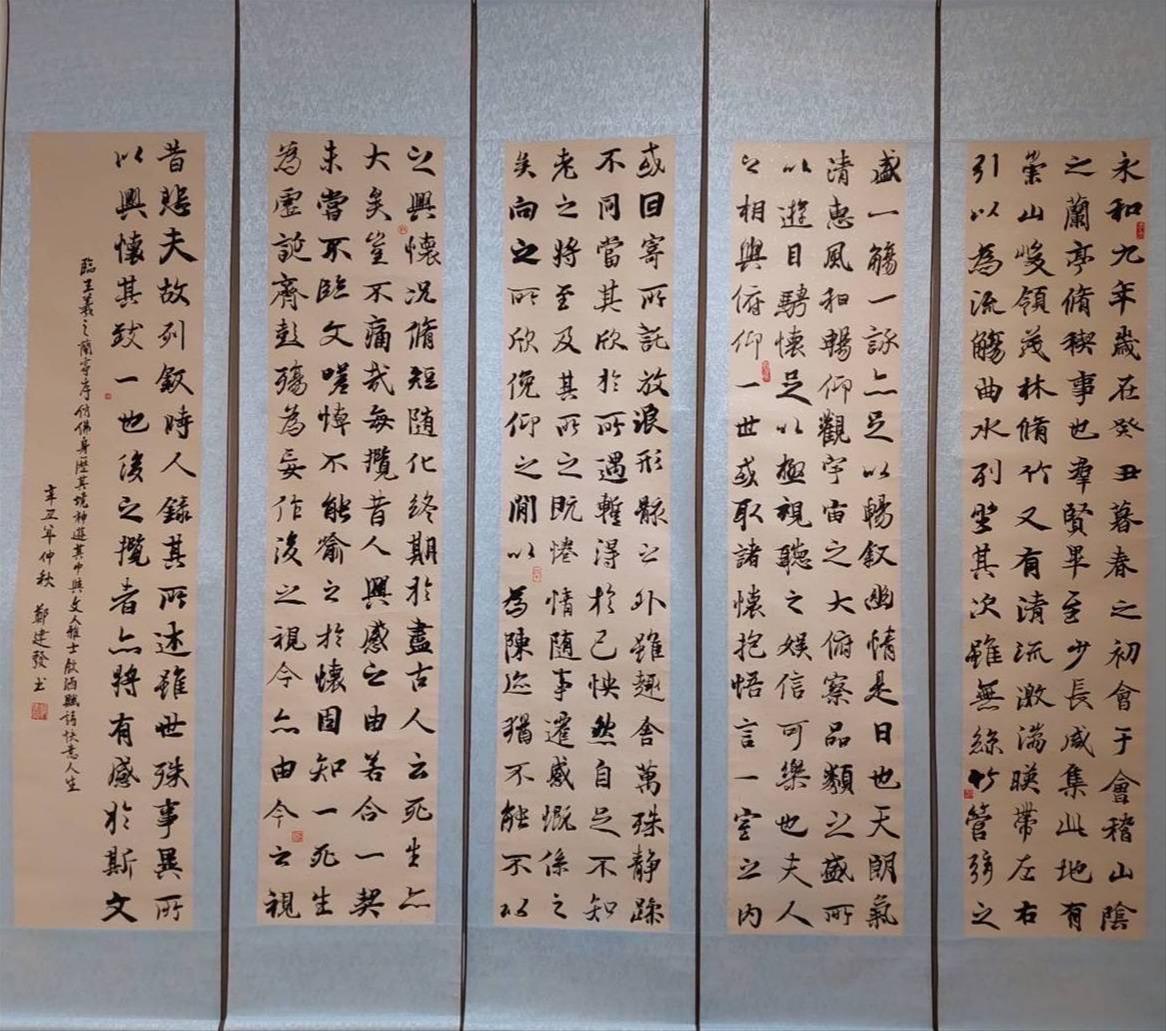 永和九年歲在癸丑暮春之初會于會稽山陰
之蘭亭脩稧事也羣賢畢至少長咸集此地有
崇山峻領茂林脩竹又有清流激湍暎帶左右
引以為流觴曲水列坐其次雖無絲竹管弦之
盛一觴一詠亦足以暢叙幽情是日也天朗氣
清惠風和暢仰觀宇宙之大俯察品類之盛所
以遊目騁懷足以極視聽之娛信可樂也夫人
之相與俯仰一世或取諸懷抱悟言一室之內
或因寄所託放浪形骸之外雖趣舍萬殊静躁
不同當其欣於所遇暫得於己怏然自足不知
老之將至及其所之既惓情隨事遷感慨係之
矣向之所欣俛仰之閒以為陳迹猶不能不以
之興懷況脩短隨化終期於盡古人云死生亦
大矣豈不痛哉每攬昔人興感之由若合一契
未嘗不臨文嗟悼不能喻之於懷固知一死生
為虛誕齊彭殤為妄作後之視今亦由今之視
昔悲夫故列叙時人錄其所述雖世殊事異所
以興懷其致一也後之攬者亦將有感於斯文
臨王羲之蘭亭序彷彿身歷其境神遊其中與文人雅士飲酒賦詩快意人生
辛丑年仲秋 鄭建發書